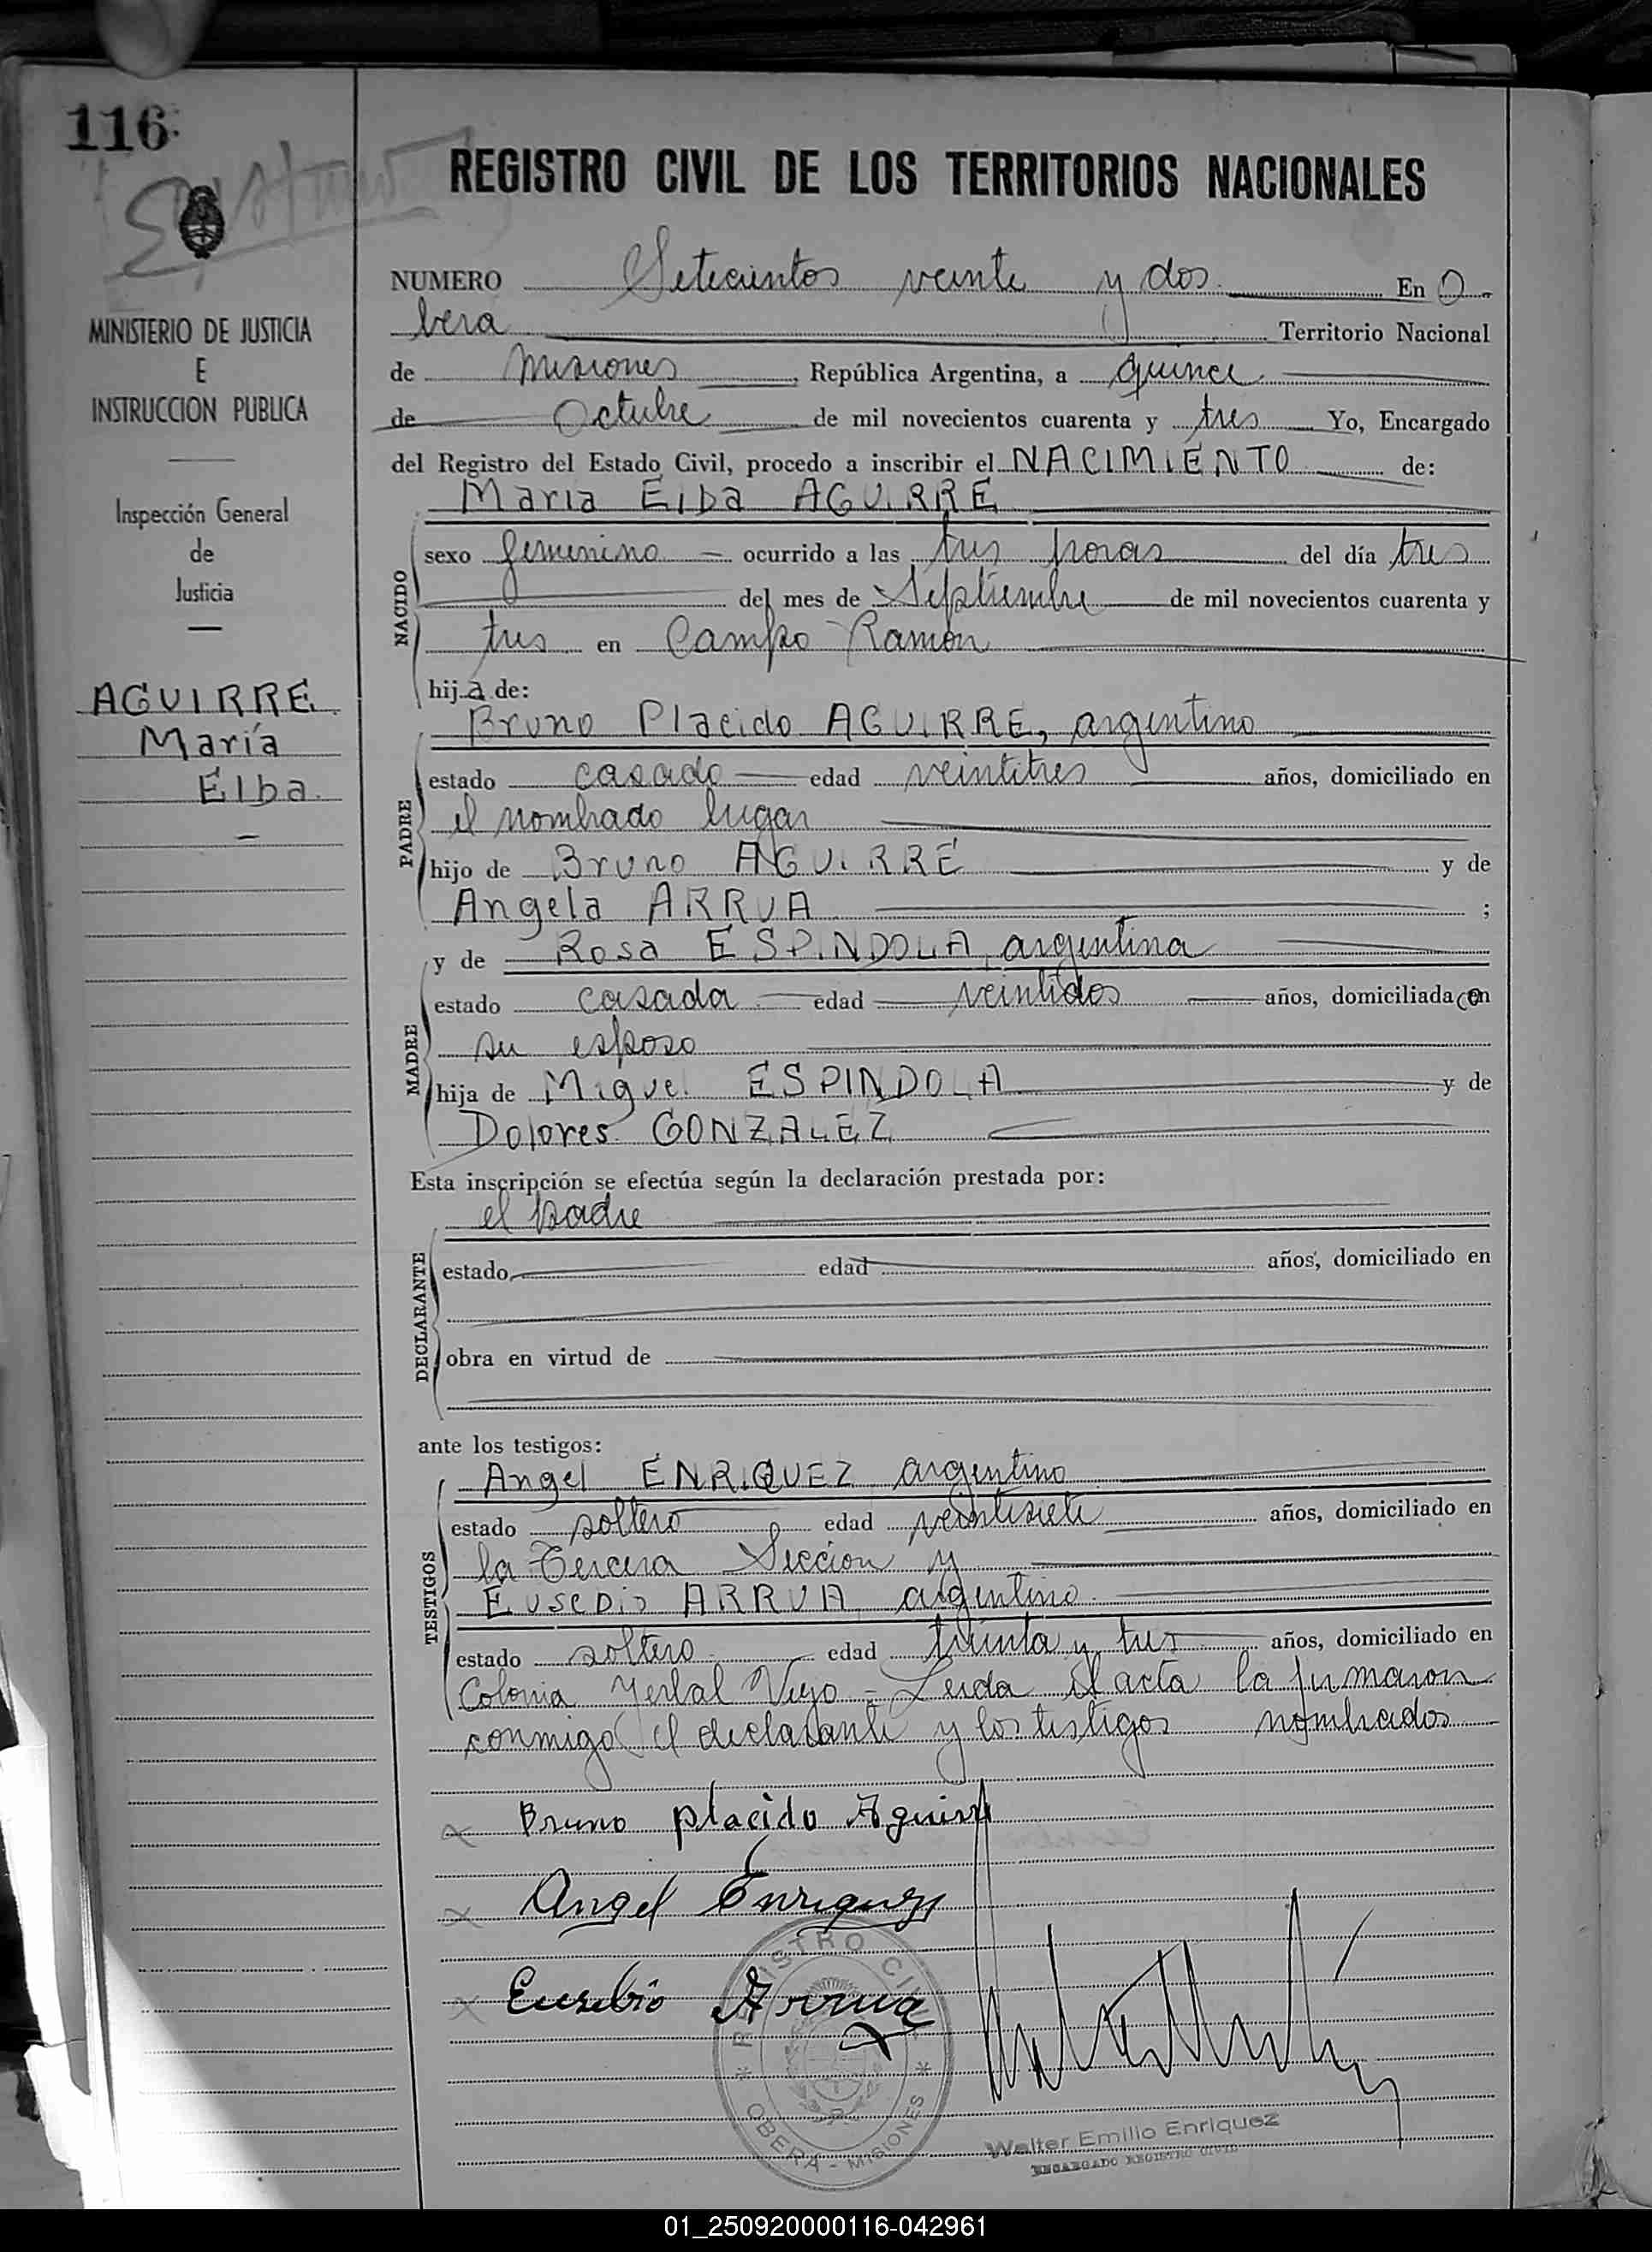 116
REGISTRO CIVIL DE LOS TERRITORIOS NACIONALES
MINISTERIO DE JUSTICIA
E
INSTRUCCION PUBLICA
Inspección General
de
Justicia
AGUIRRE
María
Elba
NUMERO Setecientos veinte y dos En O
bera Territorio Nacional
de Misiones, República Argentina, a quince
de Octubre de mil novecientos cuarenta y tres Yo, Encargado
del Registro del Estado Civil, procedo a inscribir el NACIMIENTO de:
Maria Elba AGUIRRE
NACIDO
sexo femenino - ocurrido a las tres horas del día tres
del mes de Septiembre de mil novecientos cuarenta y
tres en Campo Ramón
hija de:
Bruno Placido AGUIRRE, argentino
PADRE
estado casado edad veintitres años, domiciliado en
el nombrado lugar
hijo de Bruno AGUIRRE y de
Angela ARRUA ;
y de Rosa ESPINDOLA, argentina
MADRE
estado casada edad veintidos años, domiciliada con
su esposo
hija de Miguel ESPINDOLA y de
Dolores GONZALEZ
Esta inscripción se efectúa según la declaración prestada por:
el padre
DECLARANTE
estado edad años, domiciliado en
obra en virtud de
ante los testigos:
Angel ENRIQUEZ argentino
TESTIGOS
estado soltero edad veintisiete años, domiciliado en
la Tercera Seccion y
Eusebio ARRUA, argentino
estado soltero edad treinta y tres años, domiciliado en
Colonia Yerbal Viejo - Leida el acta la firmaron
conmigo el declarante y los testigos nombrados
Bruno placido Aguirre
Angel Enriquez
Eusebio Arrua
REGISTRO CIVIL
* OBERA - MISIONES *
Walter Emilio Enriquez
ENCARGADO REGISTRO CIVIL
01_250920000116-042961